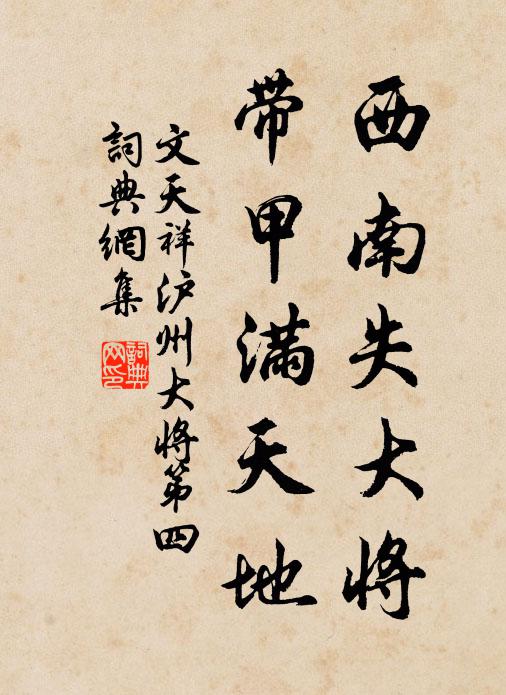 西南失大将
带甲满天地
文天祥泸州大将第四
詞典網集
詞典网印